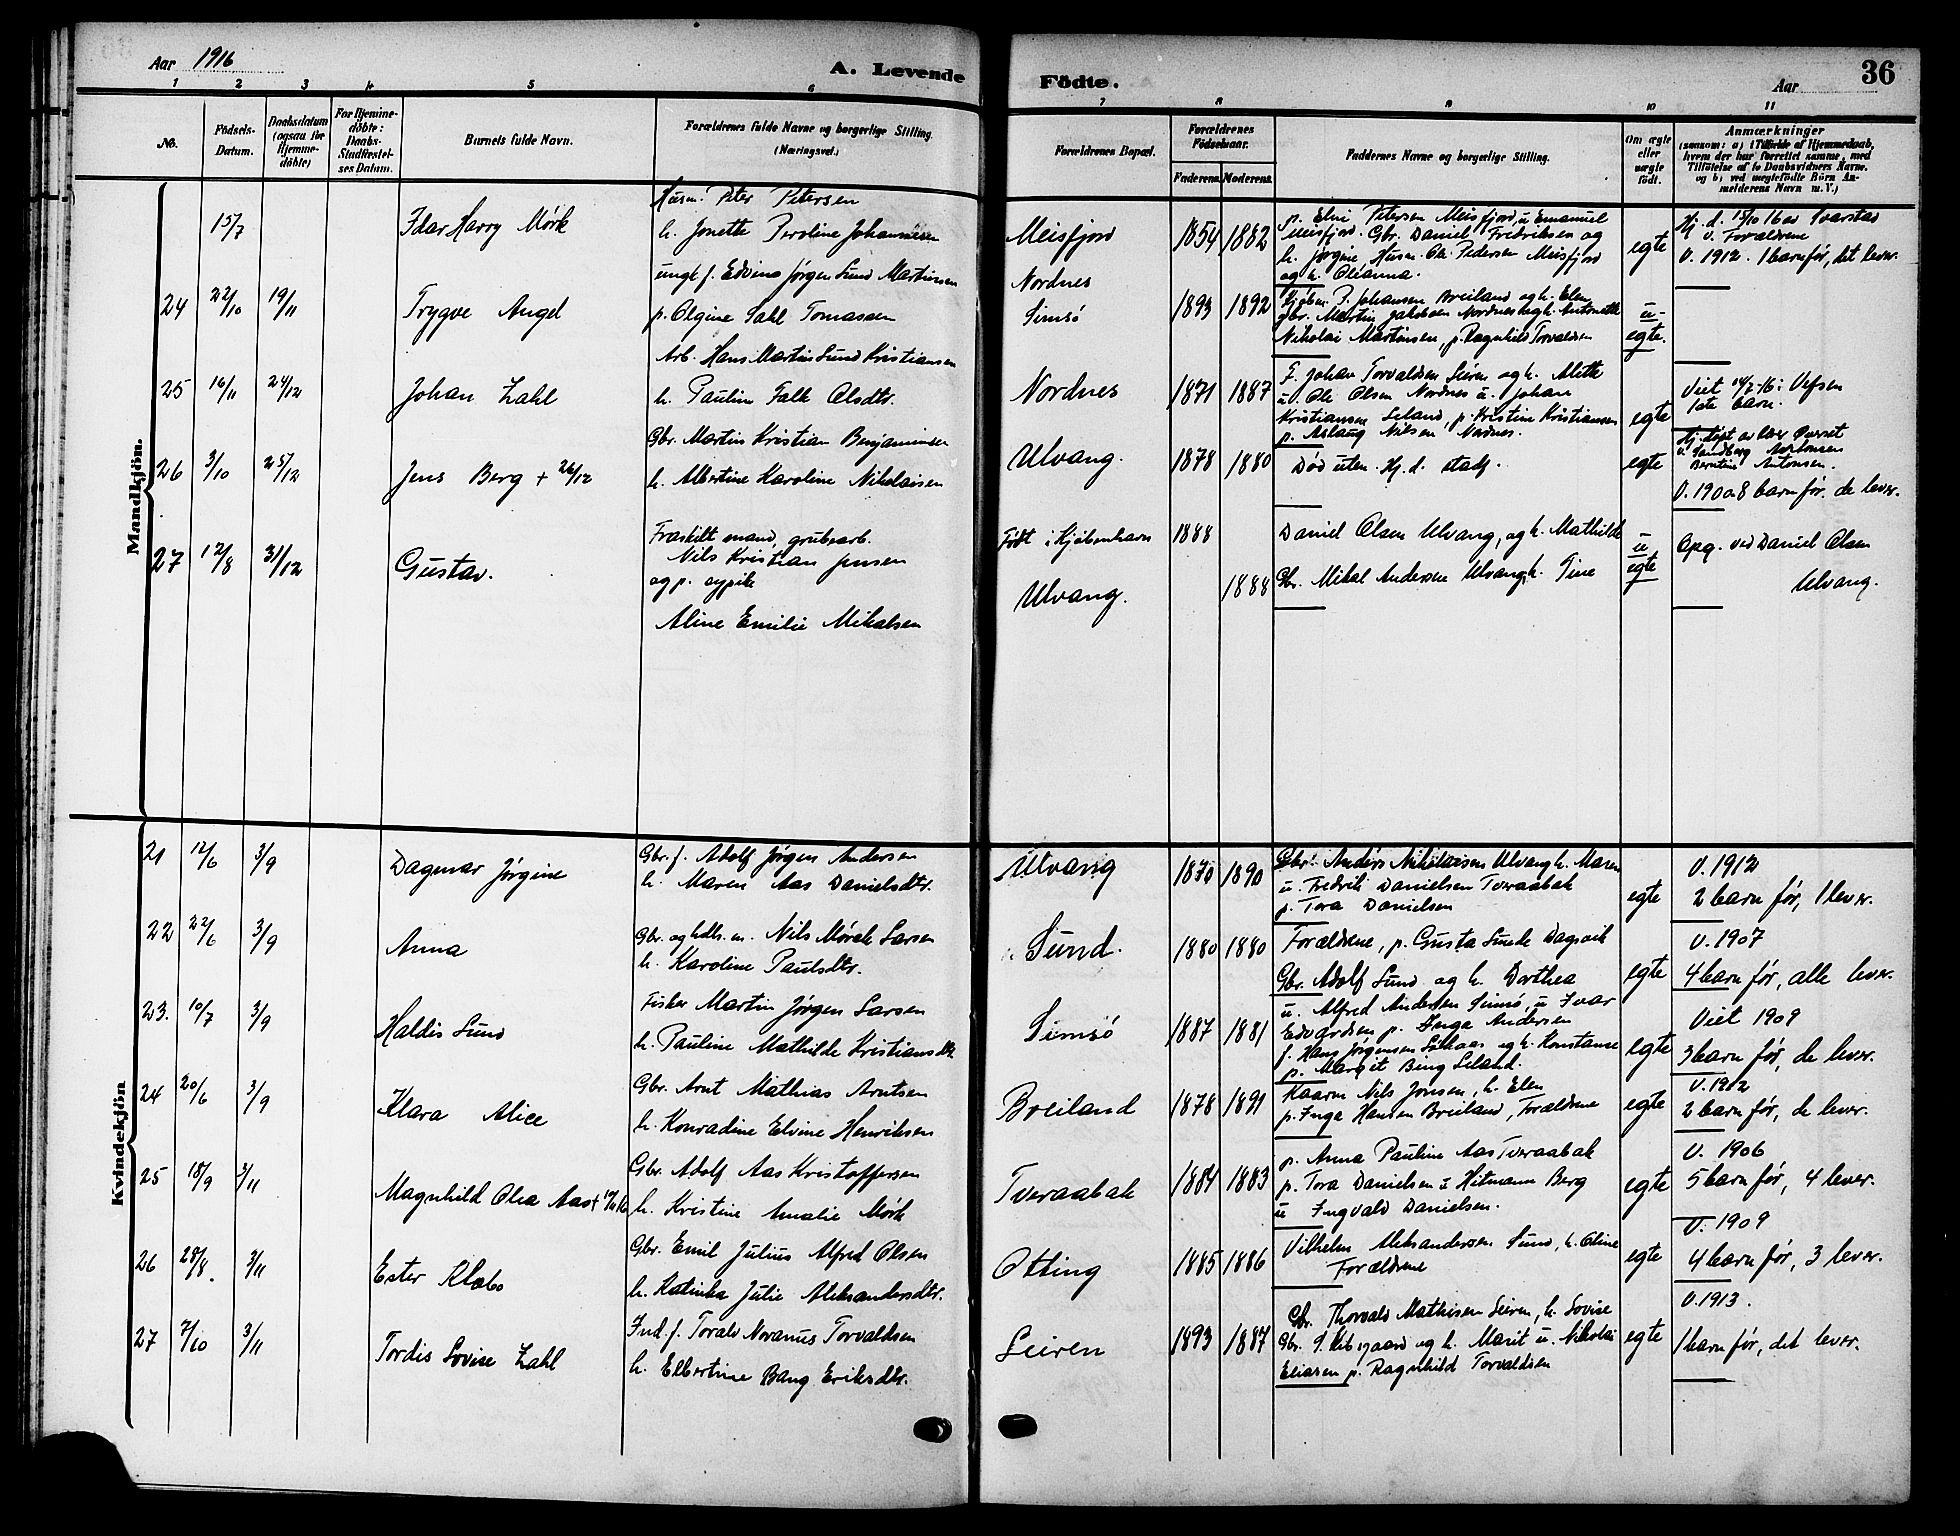 Aar 1916
A. Levende
1 2 3 4 5 6
No.
Födsels-Datum.
Daabsdatum (ogsaa for Hjemmedöbte)
For Hjemmedöbte: Daabs-Stadfæstelses Datum.
Barnets fulde Navn.
Forældrenes fulde Navne og borgerlige Stilling.
(Næringsvei.)
Födte.
36
Aar
7 8 9 10 11
Forældrenes Bopæl.
Forældrenes Födselsaar.
Faderens. Moderens.
Faddernes Navne og borgerlige Stilling.
Om ægte eller uægte födt.
Anmærkninger
(saasom: a) i Tilfælde af Hjemmedaab,
hvem der har forrettet samme, med
Tilföielse af to Daabsvidners Navne.
og b) ved uægtefödte Börn Anmelderens Navn m. V.)
Mandkjön.
15/7
Idar Harry Mörk
Husm. Peter Petersen
h. Jonette Peroline Johannesen
Meisfjord
1854 1882
p. Elvi Petersen Meisfjord u Emanuel
Meisfjord. Gbr. Daniel Fredriksen og
h. Jörgine, Husm. Ole Pedersen Meisfjord
og h. Oleanna.
egte
Hj. d. 15/10 16 av Ivarstad
v. Forældrene
V. 1912. 1 barn för, det lever.
24 22/10 19/11
Trygve Angel
ungk. f. Edvin Jörgen Sund Martinsen
p. Olgine Dahl Tomassen
Nordnes
Dimsö
1893 1892
Kjöbm. P. Johansen Breiland og h. Elen
gbr. Martin Jakobsen Nordnes og h. Antonette
Nikolai Martinsen, p. Ragnhild Torvaldsen
u-egte.
25 16/11 24/12
Johan Zahl
Arb. Hans Martin Sund Kristiansen
h. Pauline Falk Olsdtr.
Nordnes
1871 1887
F. Johan Torvaldsen Leiren og h. Alette
u. Ole Olsen Nordnes u. Johan
Kristiansen Leland, p. Kristine Kristiansen
p. Aslaug Nilsen Nordnes.
egte
Viet 14/7-16 i Vefsen
1ste barn.
26 3/10 25/12
Jens Berg + 26/12
Gbr. Martin Kristian Benjaminsen
h. Albertine Karoline Nikolaisen
Ulvang.
1878 1880
Död uten Hj. d. stadf.
egte
Berntine Antonsen.
V. 1900 8 barn för. de lever.
27 12/8 31/12
Gustav.
Fraskilt mand, grubearb.
Nils Kristian Jensen
og p. sypike
Aline Emilie Mikalsen
Födt i Kjöbenhavn
Ulvang.
1888
1888
Daniel Olsen Ulvang, og h. Mathilde
Gbr. Mikal Andersen Ulvang, h. Tine
u egte
Opg. ved Daniel Olsen
Ulvang.
Kvindekjön
21 12/6 3/9
Dagmar Jörgine
Gbr. f. Adolf Jörgen Andersen
h. Maren Aas Danielsdtr.
Ulvang
1870 1890
Gbr. Anders Nikolaisen Ulvang h. Maren
u. Fredrik Danielsen Tveraabak
p. Tora Danielsen
egte
V. 1912
2 barn för, 1 lever.
22 22/6 3/9
Anna
Gbr. og hdls. m. Nils Mörch Larsen
h. Karoline Paulsdtr.
Sund.
1880 1880
Forældrene, p. Gusta Sunde Dagsvik
Gbr. Adolf Sund og h. Dorthea
egte
V. 1907
4 barn för, alle lever.
23. 10/7 3/9
Haldis Sund
Fisker Martin Jörgen Larsen
h. Pauline Mathilde Kristiansdtr.
Dimsö
1887 1881
u. Alfred Andersen Dimsö, u Ivar
Edvardsen p. Inga Andersen
f. Hans Jörgensen og h. Konstanse
p. Margit Bing Leland.
egte
Viet 1909
3 barn för, de lever.
24 20/6 3/9
Klara Alice
Gbr. Arnt Mathias Arntsen
h. Konradine Elvine Henriksen
Breiland
1878 1891
Kaarm Nils Jonsen, h. Elen
p. Inga Hansen Breiland, Forældrene
egte
V. 1912
2 barn för, de lever.
25 18/9 3/11
Magnhild Olea Aas +
Gbr. Adolf Aas Kristoffersen
h. Kristine Amalie Mörk
Tveraabak
1884 1883
p. Anna Pauline Aas Tveraabak
p. Tora Danielsen u Hitmann Berg
u Ingvald Danielsen.
egte
V. 1906
5 barn för, 4 lever.
26 28/8. 3/11
Ester Klæbo
Gbr. Emil Julius Alfred Olsen
h. Katinka Julie Aleksandersdtr.
Otting
1885 1886
Vilhelm Aleksandersen Sund, h. Oline
Forældrene
egte
V. 1909
4 barn för, 3 lever.
27 7/10 3/11
Tordis Lovise Zahl
Ind. f. Toralv Noranus Torvaldsen
h. Elbertine Bang Eriksdtr.
Leiren
1893 1887
Gbr. Thorvald Mathisen Leiren, h. Lovise
Gbr. og h. Marit u. Nikolai
Eliasen p. Ragnhild Torvaldsen
egte
V. 1913.
1 barn för, det lever.